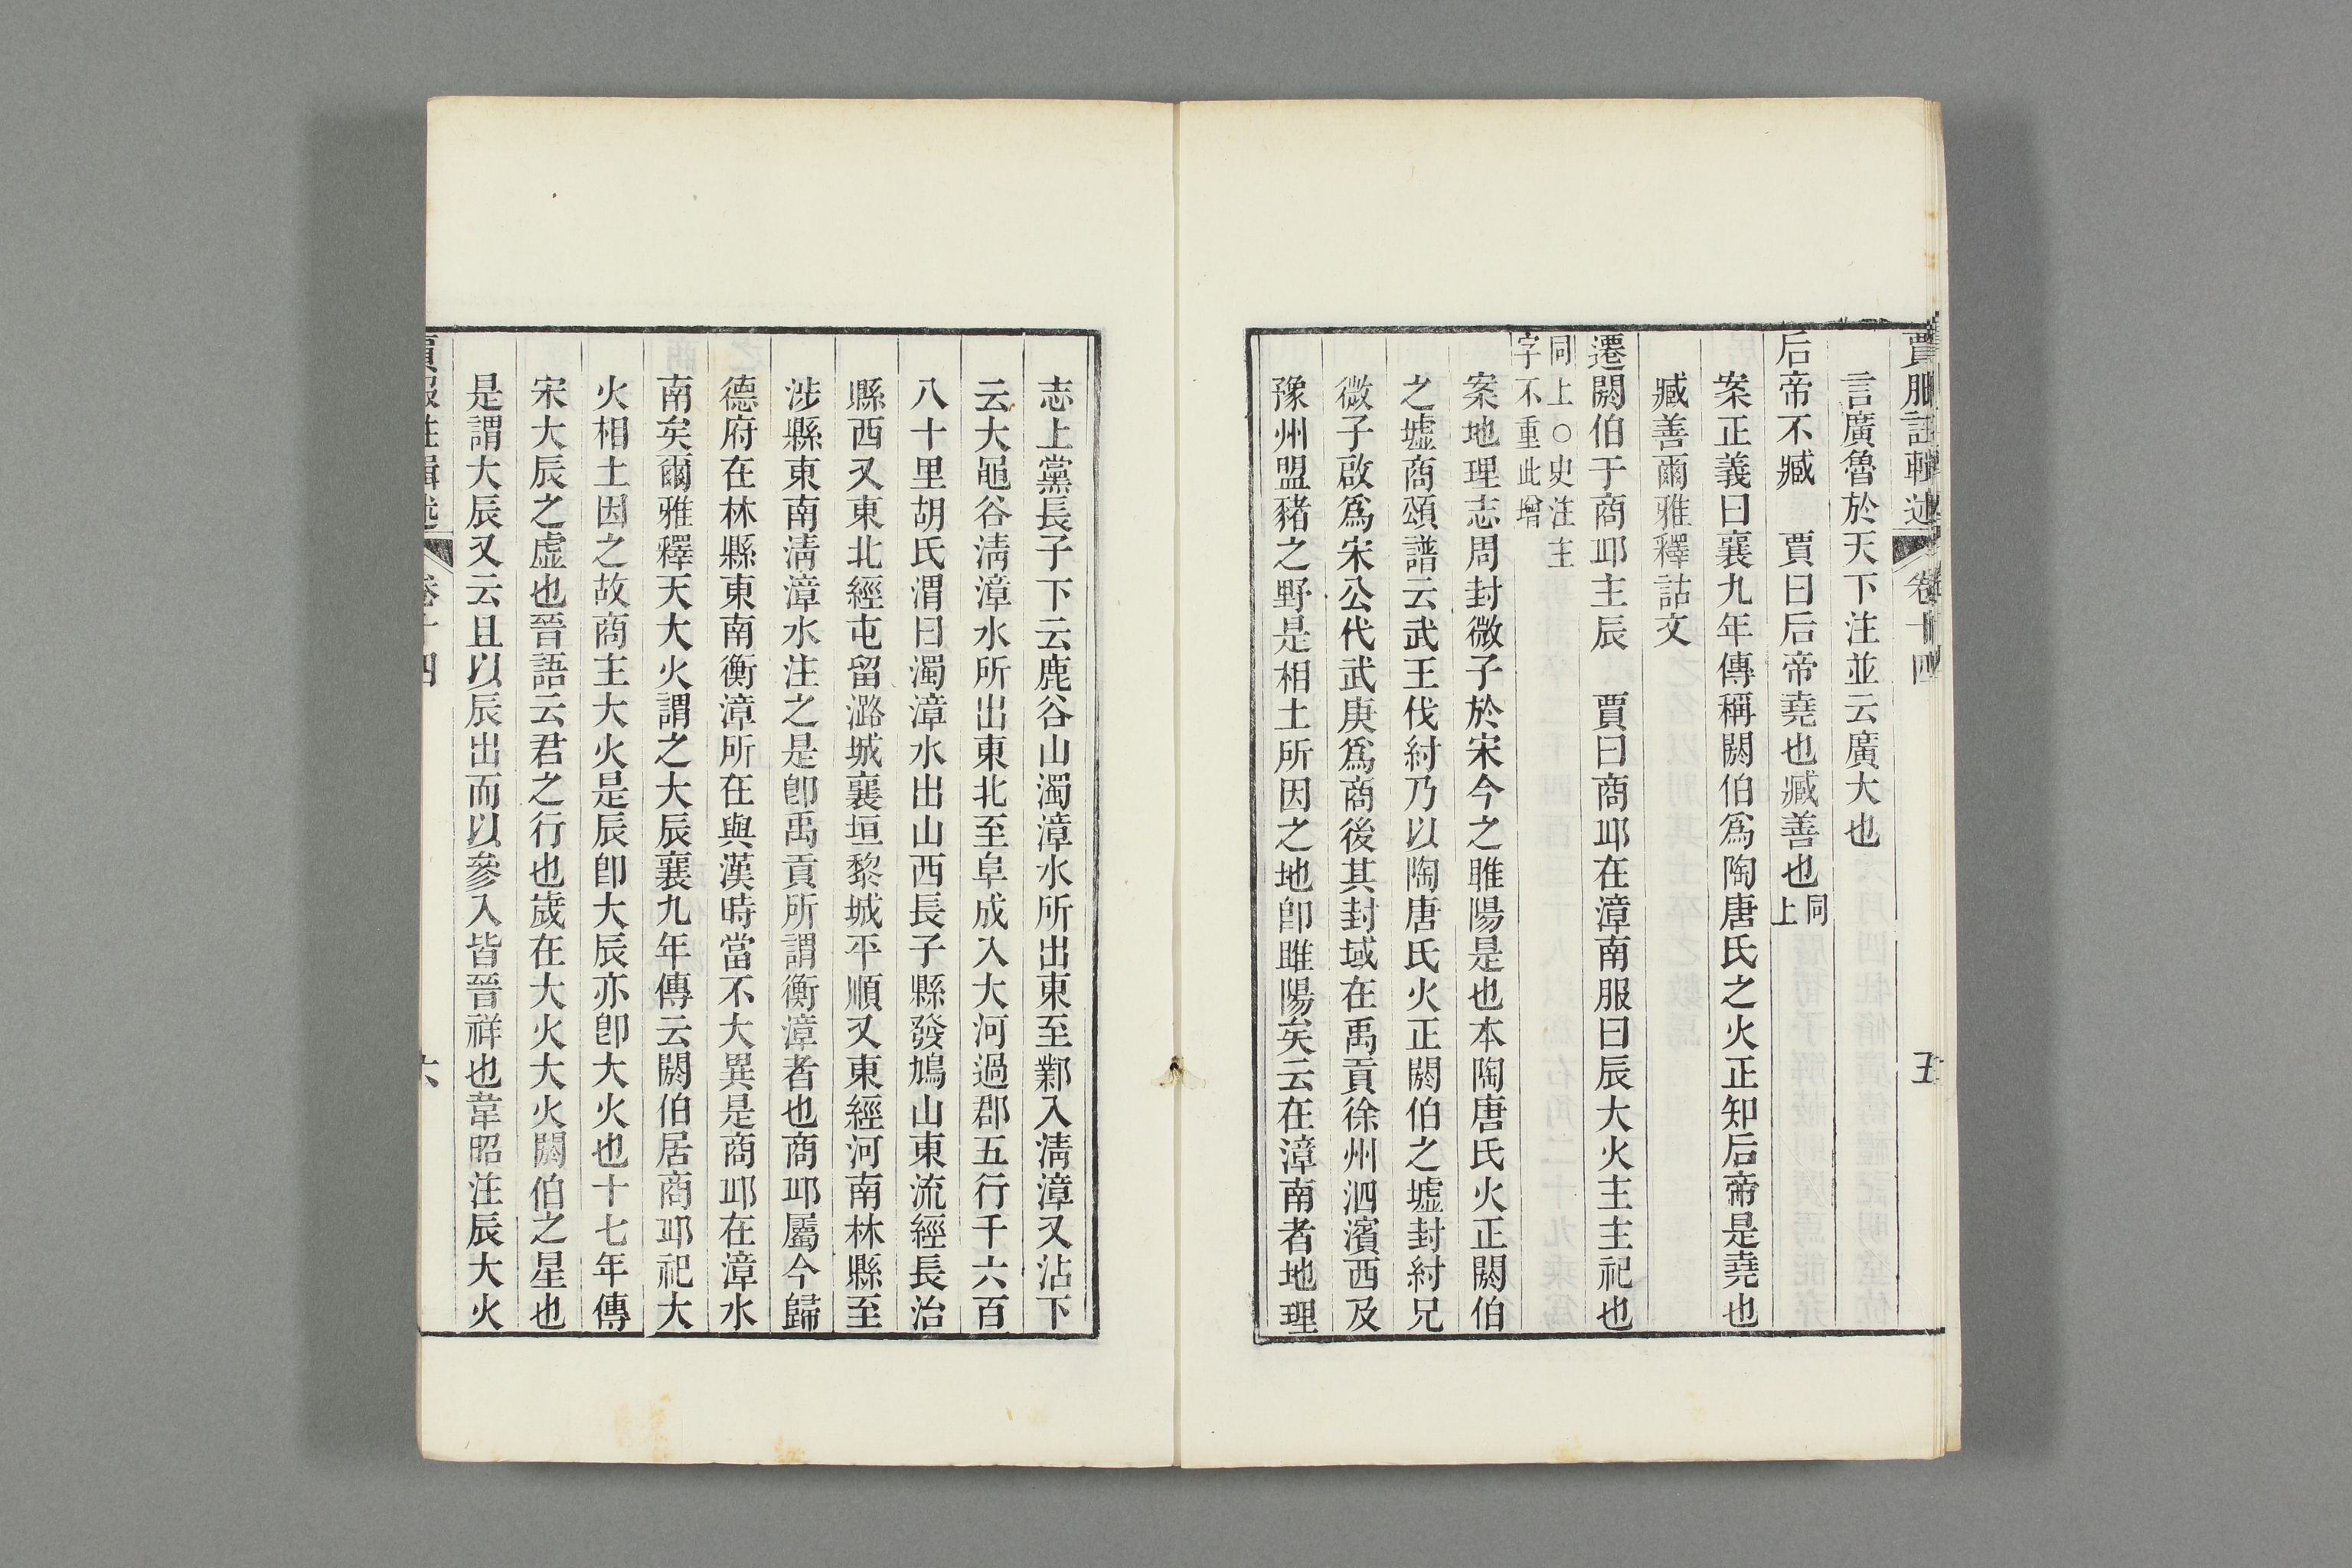 賈服註輯述 卷十四 五
言廣魯於天下注並云廣大也
后帝不臧 賈曰后帝堯也臧善也同上
案正義曰襄九年傳稱閼伯爲陶唐氏之火正知后帝是堯也
臧善爾雅釋詁文
遷閼伯于商邱主辰 賈曰商邱在漳南服曰辰大火主主祀也
同上○史注主
字不重此增
案地理志周封微子於宋今之睢陽是也本陶唐氏火正閼伯
之墟商頌譜云武王伐紂乃以陶唐氏火正閼伯之墟封紂兄
微子啟爲宋公代武庚爲商後其封域在禹貢徐州泗濱西及
豫州盟豬之野是相土所因之地卽睢陽矣云在漳南者地理
志上黨長子下云鹿谷山濁漳水所出東至鄴入淸漳又沾下
云大黽谷淸漳水所出東北至阜成入大河過郡五行千六百
八十里胡氏渭曰濁漳水出山西長子縣發鳩山東流經長治
縣西又東北經屯留潞城襄垣黎城平順又東經河南林縣至
涉縣東南淸漳水注之是卽禹貢所謂衡漳者也商邱屬今歸
德府在林縣東南衡漳所在與漢時當不大異是商邱在漳水
南矣爾雅釋天大火謂之大辰襄九年傳云閼伯居商邱祀大
火相土因之故商主大火是辰卽大辰亦卽大火也十七年傳
宋大辰之虛也晉語云君之行也歲在大火大火閼伯之星也
是謂大辰又云且以辰出而以參入皆晉祥也韋昭注辰大火
賈服註輯述 卷十四 六